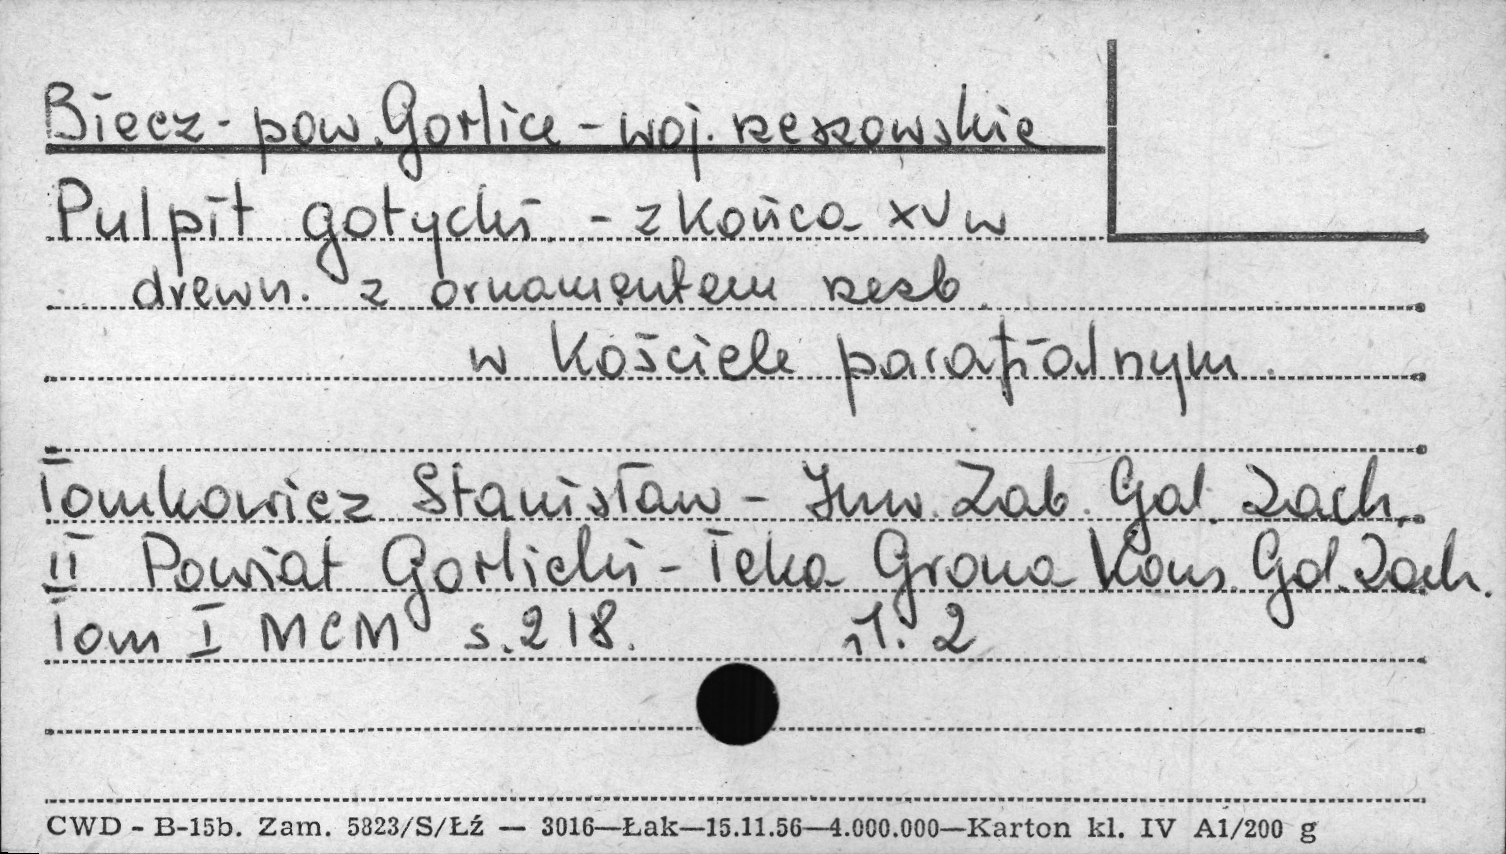 Biecz - pow. Gorlice - woj. rzeszowskie
Pulpit gotycki - z końca XV w
drewn. z ornamentem rzeźb.
w kościele parafialnym.
Tomkowicz Stanisław - Inw. Zab. Gal. Zach.
II Powiat Gorlicki - Teka Grona Kons. Gal. Zach.
Tom I MCM s. 218. il. 2
CWD - B-15b. Zam. 5823/S/Łź — 3016—Łak—15.11.56—4.000.000—Karton kl. IV A1/200 g